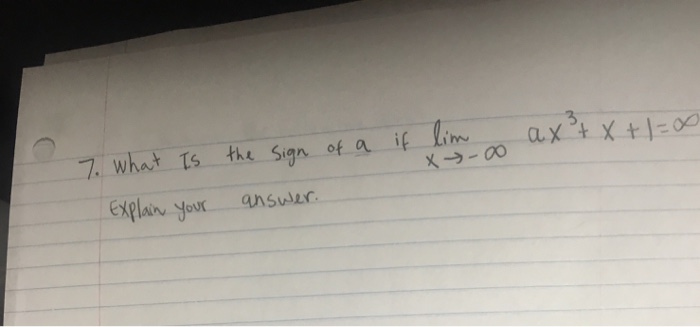 7. What Is the sign of a if lim x→-∞ ax³ + x + 1 = ∞
Explain your answer.